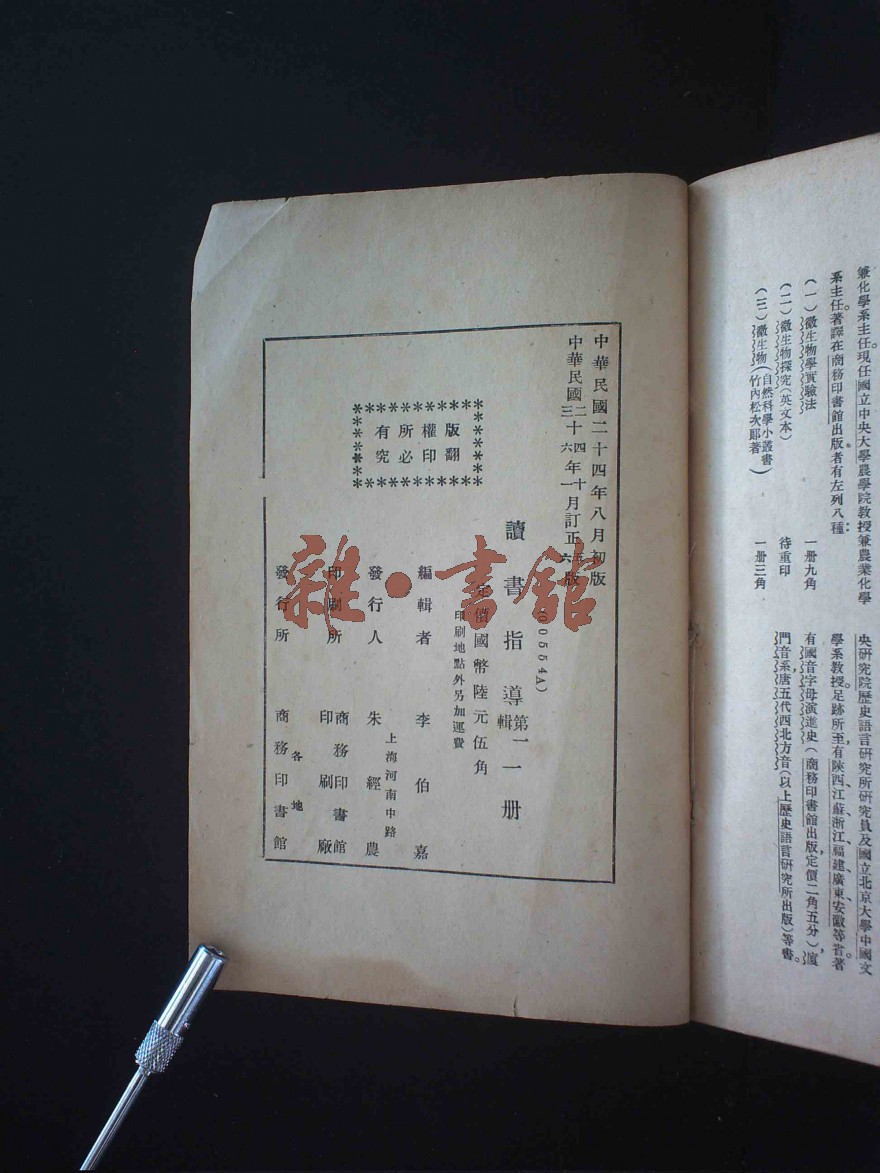 兼化學系主任。現任國立中央大學農學院教授兼農業化學
系主任。著譯在商務印書館出版者有左列八種：
（一）微生物學實驗法 一册九角
（二）微生物探究（英文本） 待重印
（三）微生物（自然科學小叢書 竹內松次郎著） 一册三角
央研究院歷史語言研究所研究員及國立北京大學中國文
學系教授。足跡所至，有陝西、江蘇、浙江、福建、廣東、安徽等省。著
有國音字母演進史（商務印書館出版，定價二角五分）、廈
門音系、唐五代西北方音（以上歷史語言研究所出版）等書。
中華民國二十四年八月初版
中華民國二十四年十月訂正五版
三六年一月六版
(00554A)
讀書指導第一輯一册
定價國幣陸元伍角
印刷地點外另加運費
版權所有
翻印必究
編輯者 李伯嘉
發行人 朱經農
上海河南中路
印刷所 商務印書館印刷廠
各地
發行所 商務印書館
雜·書館